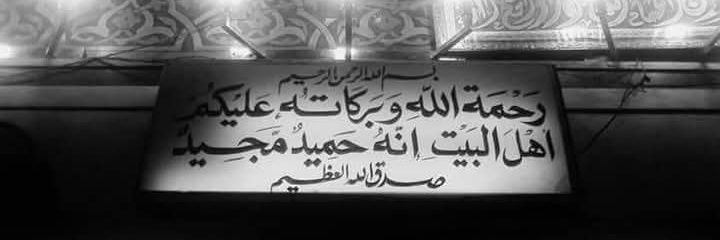 بسم الله الرحمن الرحيم
رَحْمَة اللَّهِ وَبَرَكَاتُه عَلَيْكُمْ
اهْلَ البَيْتِ إنَّهُ حَمِيدٌ مَّجِيدٌ
صدق الله العظيم